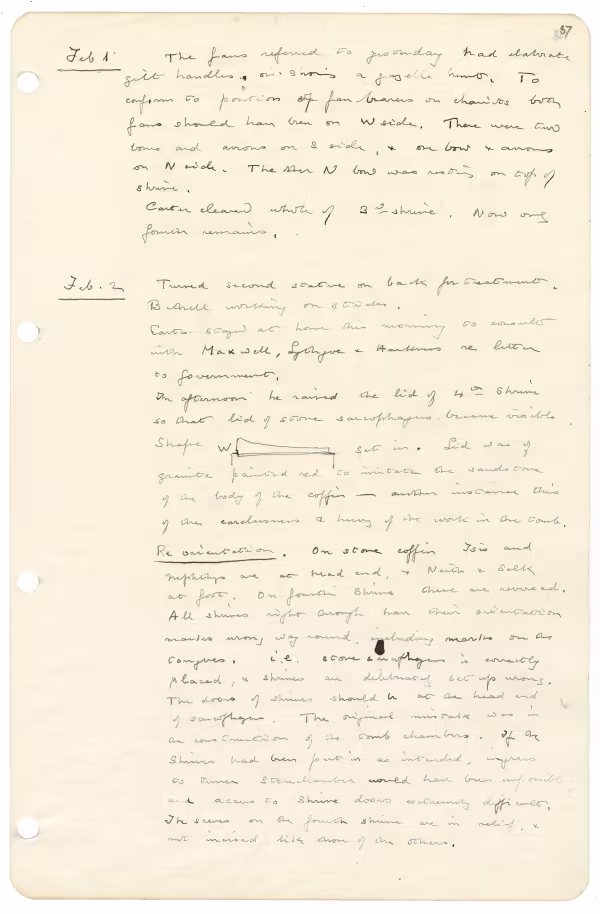 57
Feb 1. The fans referred to yesterday had elaborate
gilt handles, one shows a gazelle hunt. To
conform to position of fan bearers on chariots both
fans should have been on W side. There were two
bows and arrows on S side, & one bow & arrows
on N side. The other N bow was resting on top of
shrine.
Carter cleared whole of 3rd shrine. Now only
fourth remains.
Feb. 2 Turned second statue on back for treatment.
Bethell working on sticks.
Carter stayed at home this morning to consult
with Maxwell, Lythgoe & Harkness re letter
to Government.
In afternoon he raised the lid of 4th shrine
so that lid of stone sarcophagus became visible.
Shape W set in. Lid was of
granite painted red to imitate the sandstone
of the body of the coffin — another instance this
of the carelessness & hurry of the work in the tomb.
Re orientation. On stone coffin Isis and
Nephthys are at head end, & Neith & Selk
at foot. On fourth shrine these are reversed.
All shrines right through have their orientation
marks wrong way round, including marks on the
tongues. i.e. stone sarcophagus is correctly
placed, & shrines are deliberately set up wrong.
The doors of shrines should be at the head end
of sarcophagus. The original mistake was in
the construction of the tomb chambers. If the
shrines had been put in as intended, ingress
to inner Storechamber would have been impossible
and access to shrine doors extremely difficult.
The scenes on the fourth shrine are in relief, &
not incised like those of the others.